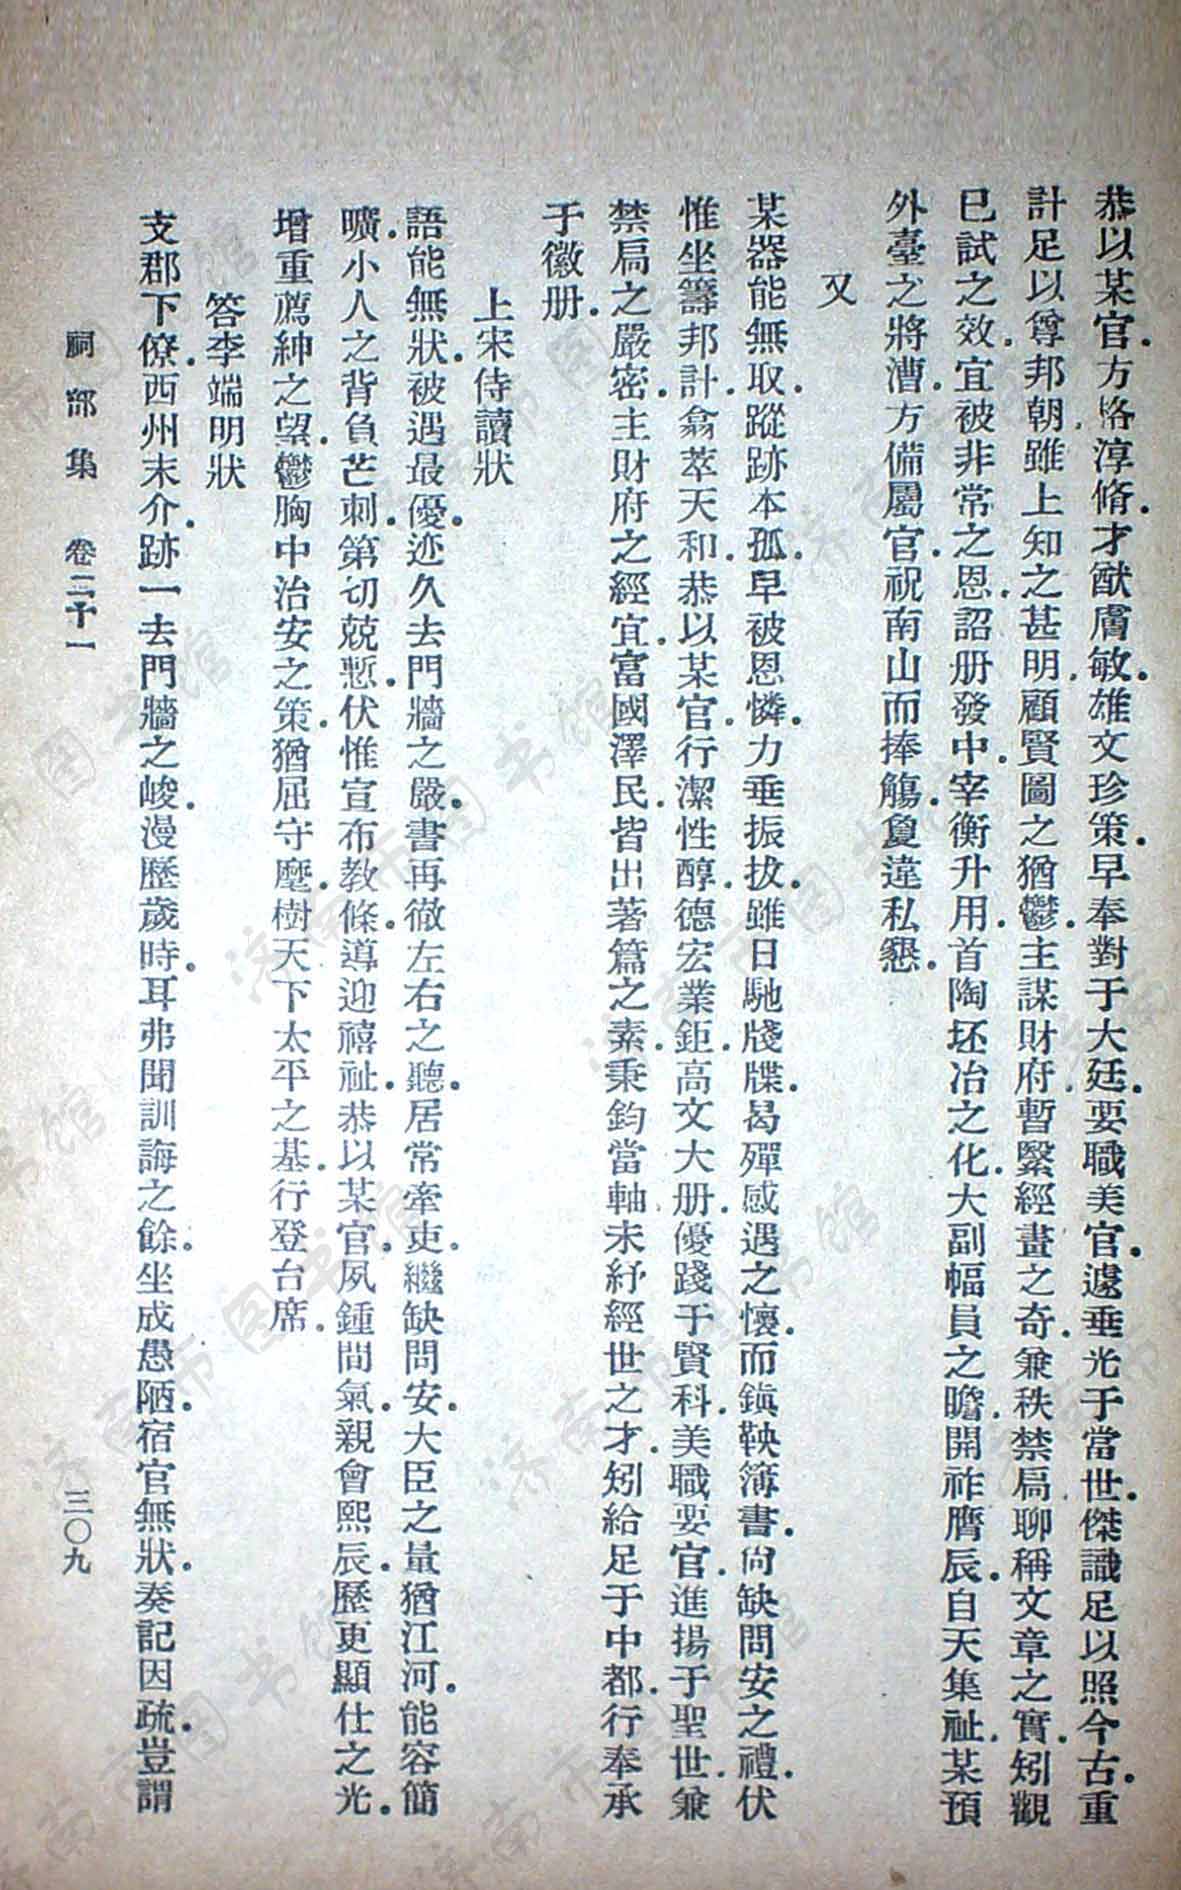 恭以某官.方格淳脩.才猷膚敏.雄文珍策.早奉對于大廷.要職美官.遽垂光于當世.傑識足以照今古.重
計足以尊邦朝.雖上知之甚明.顧賢圖之猶鬱.主謀財府.暫繄經畫之奇.兼秩禁局.聊稱文章之實.矧觀
已試之效.宜被非常之恩.詔册發中.宰衡升用.首陶坯冶之化.大副幅員之瞻.開祚膺辰.自天集祉.某預
外臺之將漕.方備屬官.祝南山而捧觴.敻違私懇.
又
某器能無取.蹤跡本孤.早被恩憐.力垂振拔.雖日馳牋牒.曷殫感遇之懷.而鎮鞅簿書.尙缺問安之禮.伏
惟坐籌邦計.翕萃天和.恭以某官.行潔性醇.德宏業鉅.高文大册.優踐于賢科.美職要官.進揚于聖世.兼
禁局之嚴密.主財府之經宜.富國澤民.皆出著篇之素.秉鈞當軸.未紓經世之才.矧給足于中都.行奉承
于徽册.
上宋侍讀狀
語能無狀.被遇最優.迹久去門牆之嚴.書再徹左右之聽.居常牽吏.繼缺問安.大臣之量猶江河.能容簡
曠.小人之背負芒刺.第切兢慙.伏惟宣布教條.導迎禧祉.恭以某官.夙鍾間氣.親會熙辰.歷更顯仕之光.
增重薦紳之望.鬱胸中治安之策.猶屈守麾.樹天下太平之基.行登台席.
答李端明狀
支郡下僚.西州末介.跡一去門牆之峻.漫歷歲時.耳弗聞訓誨之餘.坐成愚陋.宿官無狀.奏記因疏.豈謂
祠部集 卷三十一 三〇九
济南市图书馆